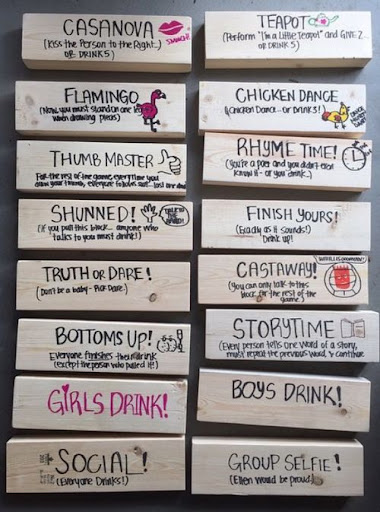 CASANOVA
(Kiss the Person to the Right...)
OR DRINK 5)
SMOOCH!
FLAMINGO
(Now, you must stand on one leg
when drawing pieces)
THUMB MASTER
For the rest of the game, everytime you
down your thumb, everyone follows suit... last one
SHUNNED!
(if you pull this block... anyone who
talks to you must drink!)
TALK TO
THE
HAND!
TRUTH OR DARE!
(Don't be a baby - Pick Dare.)
BOTTOMS UP!
Everyone finishes their drink
(except the person who pulled it!)
GIRLS DRINK!
SOCIAL!
(Everyone Drinks!)
TEAPOT
(Perform "I'm a Little Teapot" and GIVE 2...
or DRINK 5)
CHICKEN DANCE
(Chicken Dance... or Drink 3!)
RHYME TIME!
(You're a poet and you didn't even
know it - or you drink..)
FINISH YOURS!
(Exactly as it sounds!)
Drink up!
CASTAWAY!
(You can only talk to this
block for the rest of the
game)
STORYTIME
(Every person tells one word of a story,
must repeat the previous word, & continue
BOYS DRINK!
GROUP SELFIE!
(Ellen would be proud)